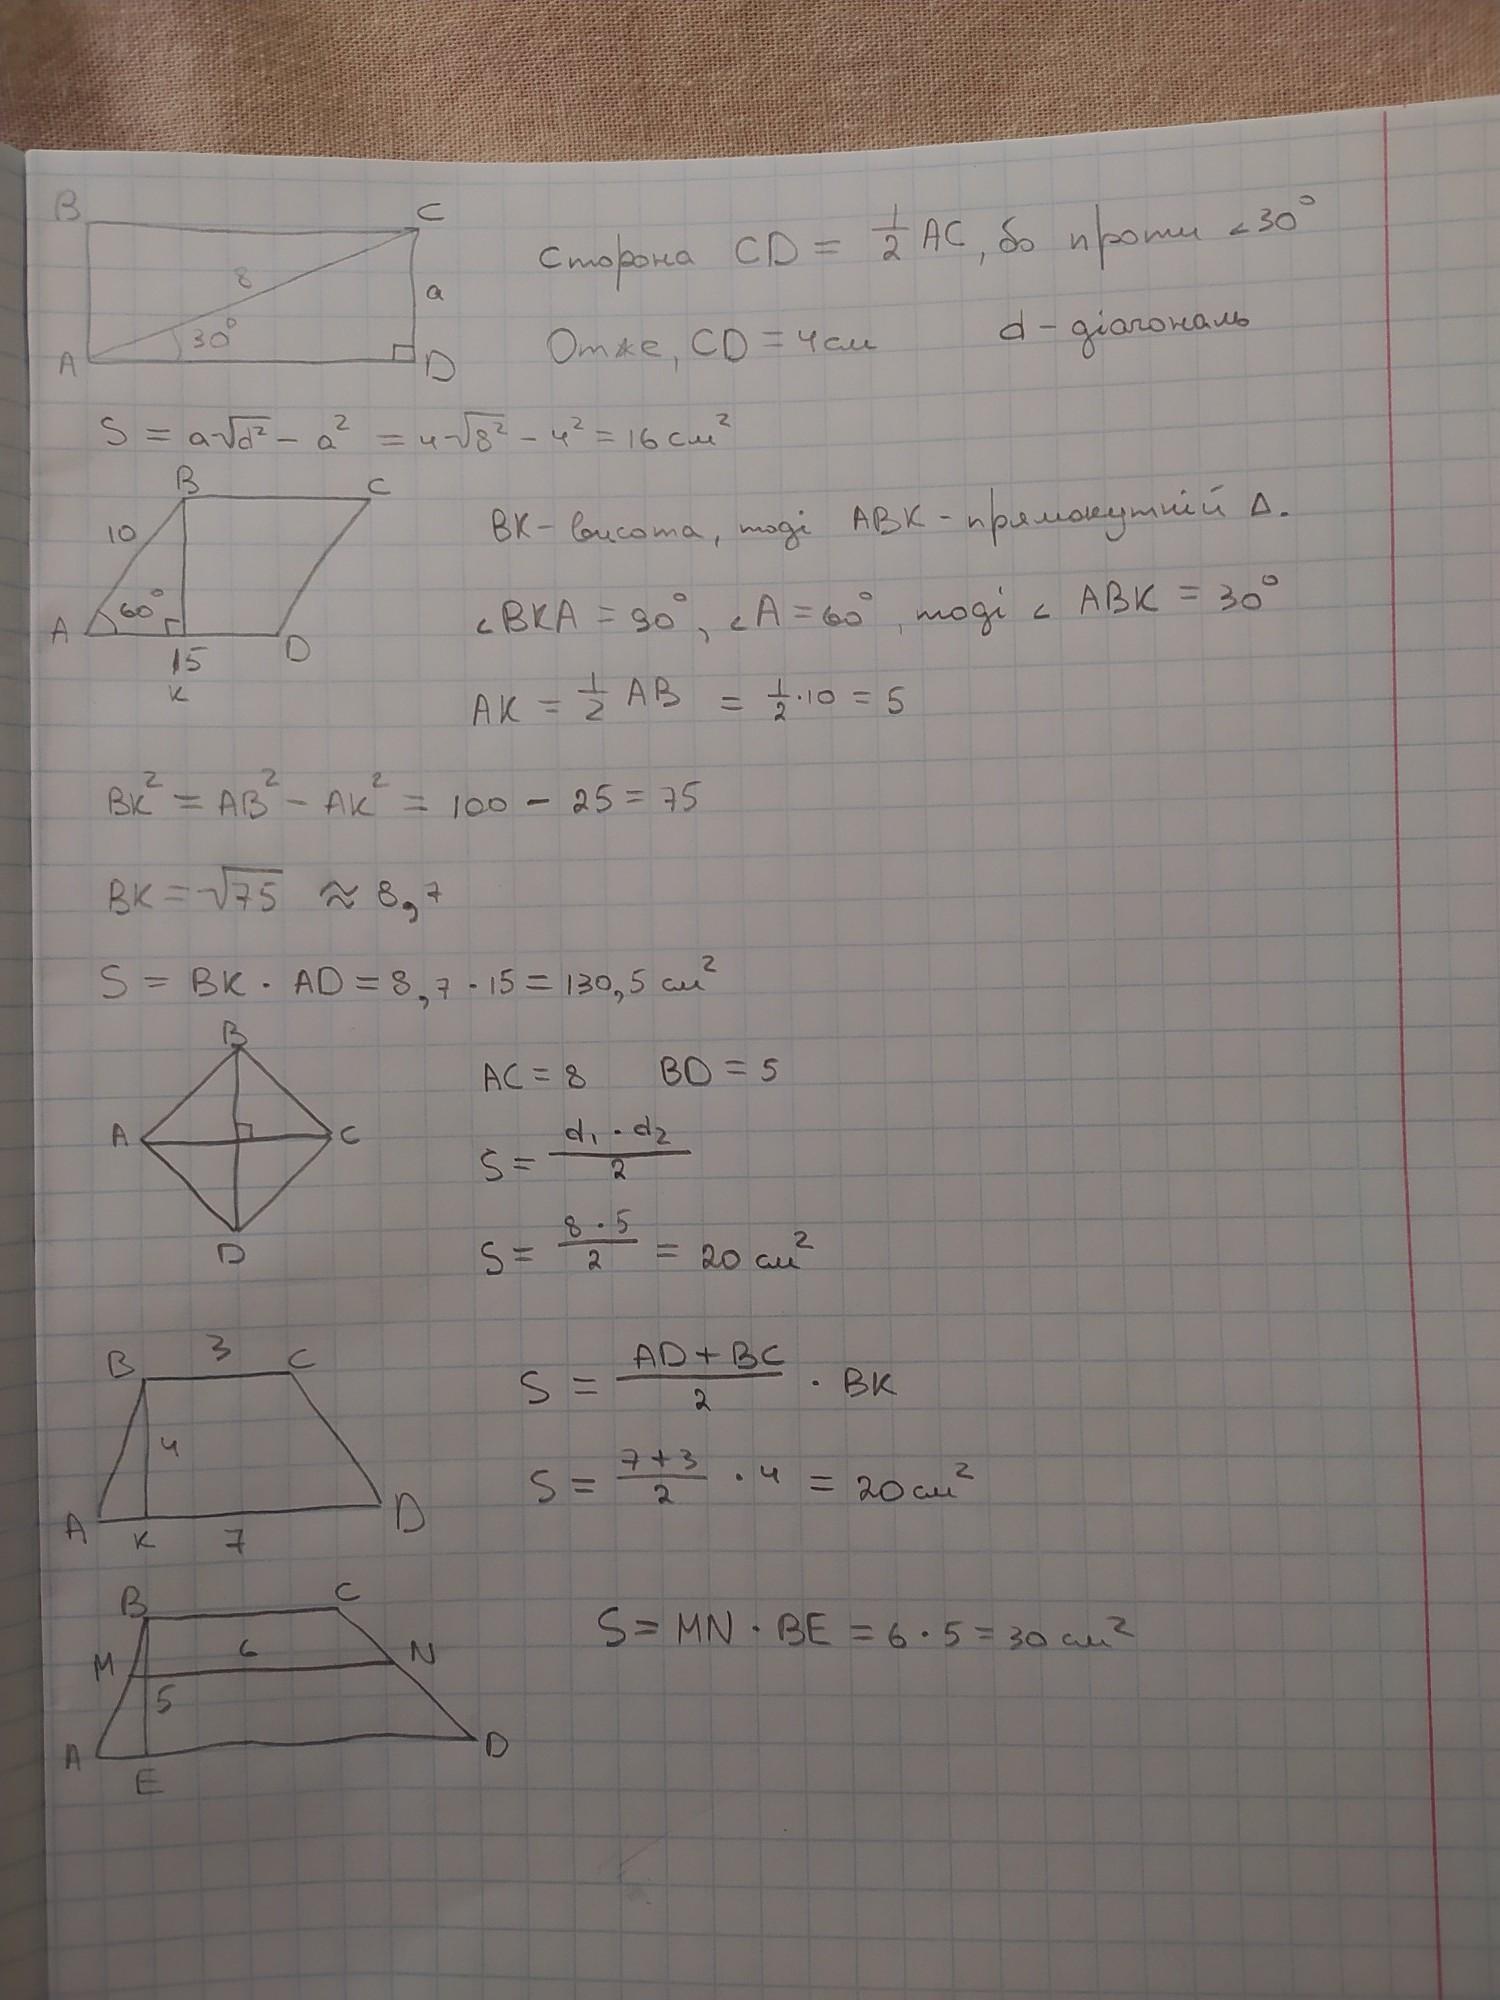 B C
8 a
30°
A D
Сторона CD = 1/2 AC, бо проти <30°
Отже, CD = 4см d - діагональ
S = a√d² - a² = 4√8² - 4² = 16 см²
B C
10
60°
A D
15
K
BK - висота, тоді ABK - прямокутній Δ.
<BKA = 90°, <A = 60°, тоді < ABK = 30°
AK = 1/2 AB = 1/2 · 10 = 5
BK² = AB² - AK² = 100 - 25 = 75
BK = √75 ≈ 8,7
S = BK · AD = 8,7 · 15 = 130,5 см²
B
A C
D
AC = 8 BD = 5
S = d₁ · d₂ / 2
S = 8 · 5 / 2 = 20 см²
3
B C
4
A K 7 D
S = AD + BC / 2 · BK
S = 7 + 3 / 2 · 4 = 20 см²
B C
M 6 N
5
A E D
S = MN · BE = 6 · 5 = 30 см²